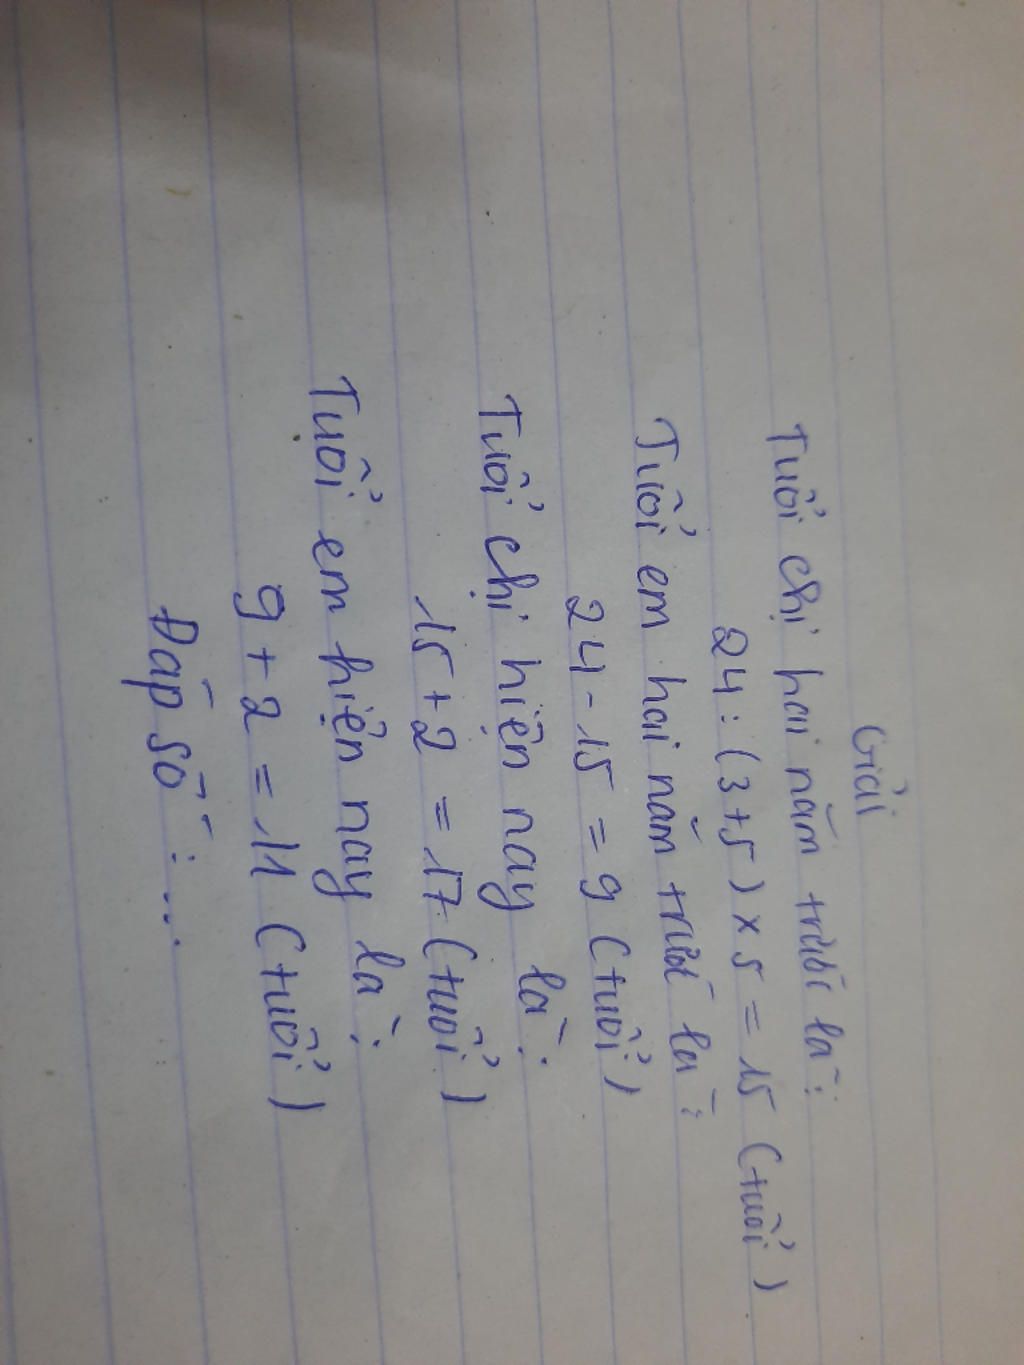 Giải
Tuổi chị hai năm trước là:
24 : (3+5) x 5 = 15 (tuổi)
Tuổi em hai năm trước là:
24 - 15 = 9 (tuổi)
Tuổi chị hiện nay là:
15 + 2 = 17 (tuổi)
Tuổi em hiện nay là:
9 + 2 = 11 (tuổi)
Đáp số: ...